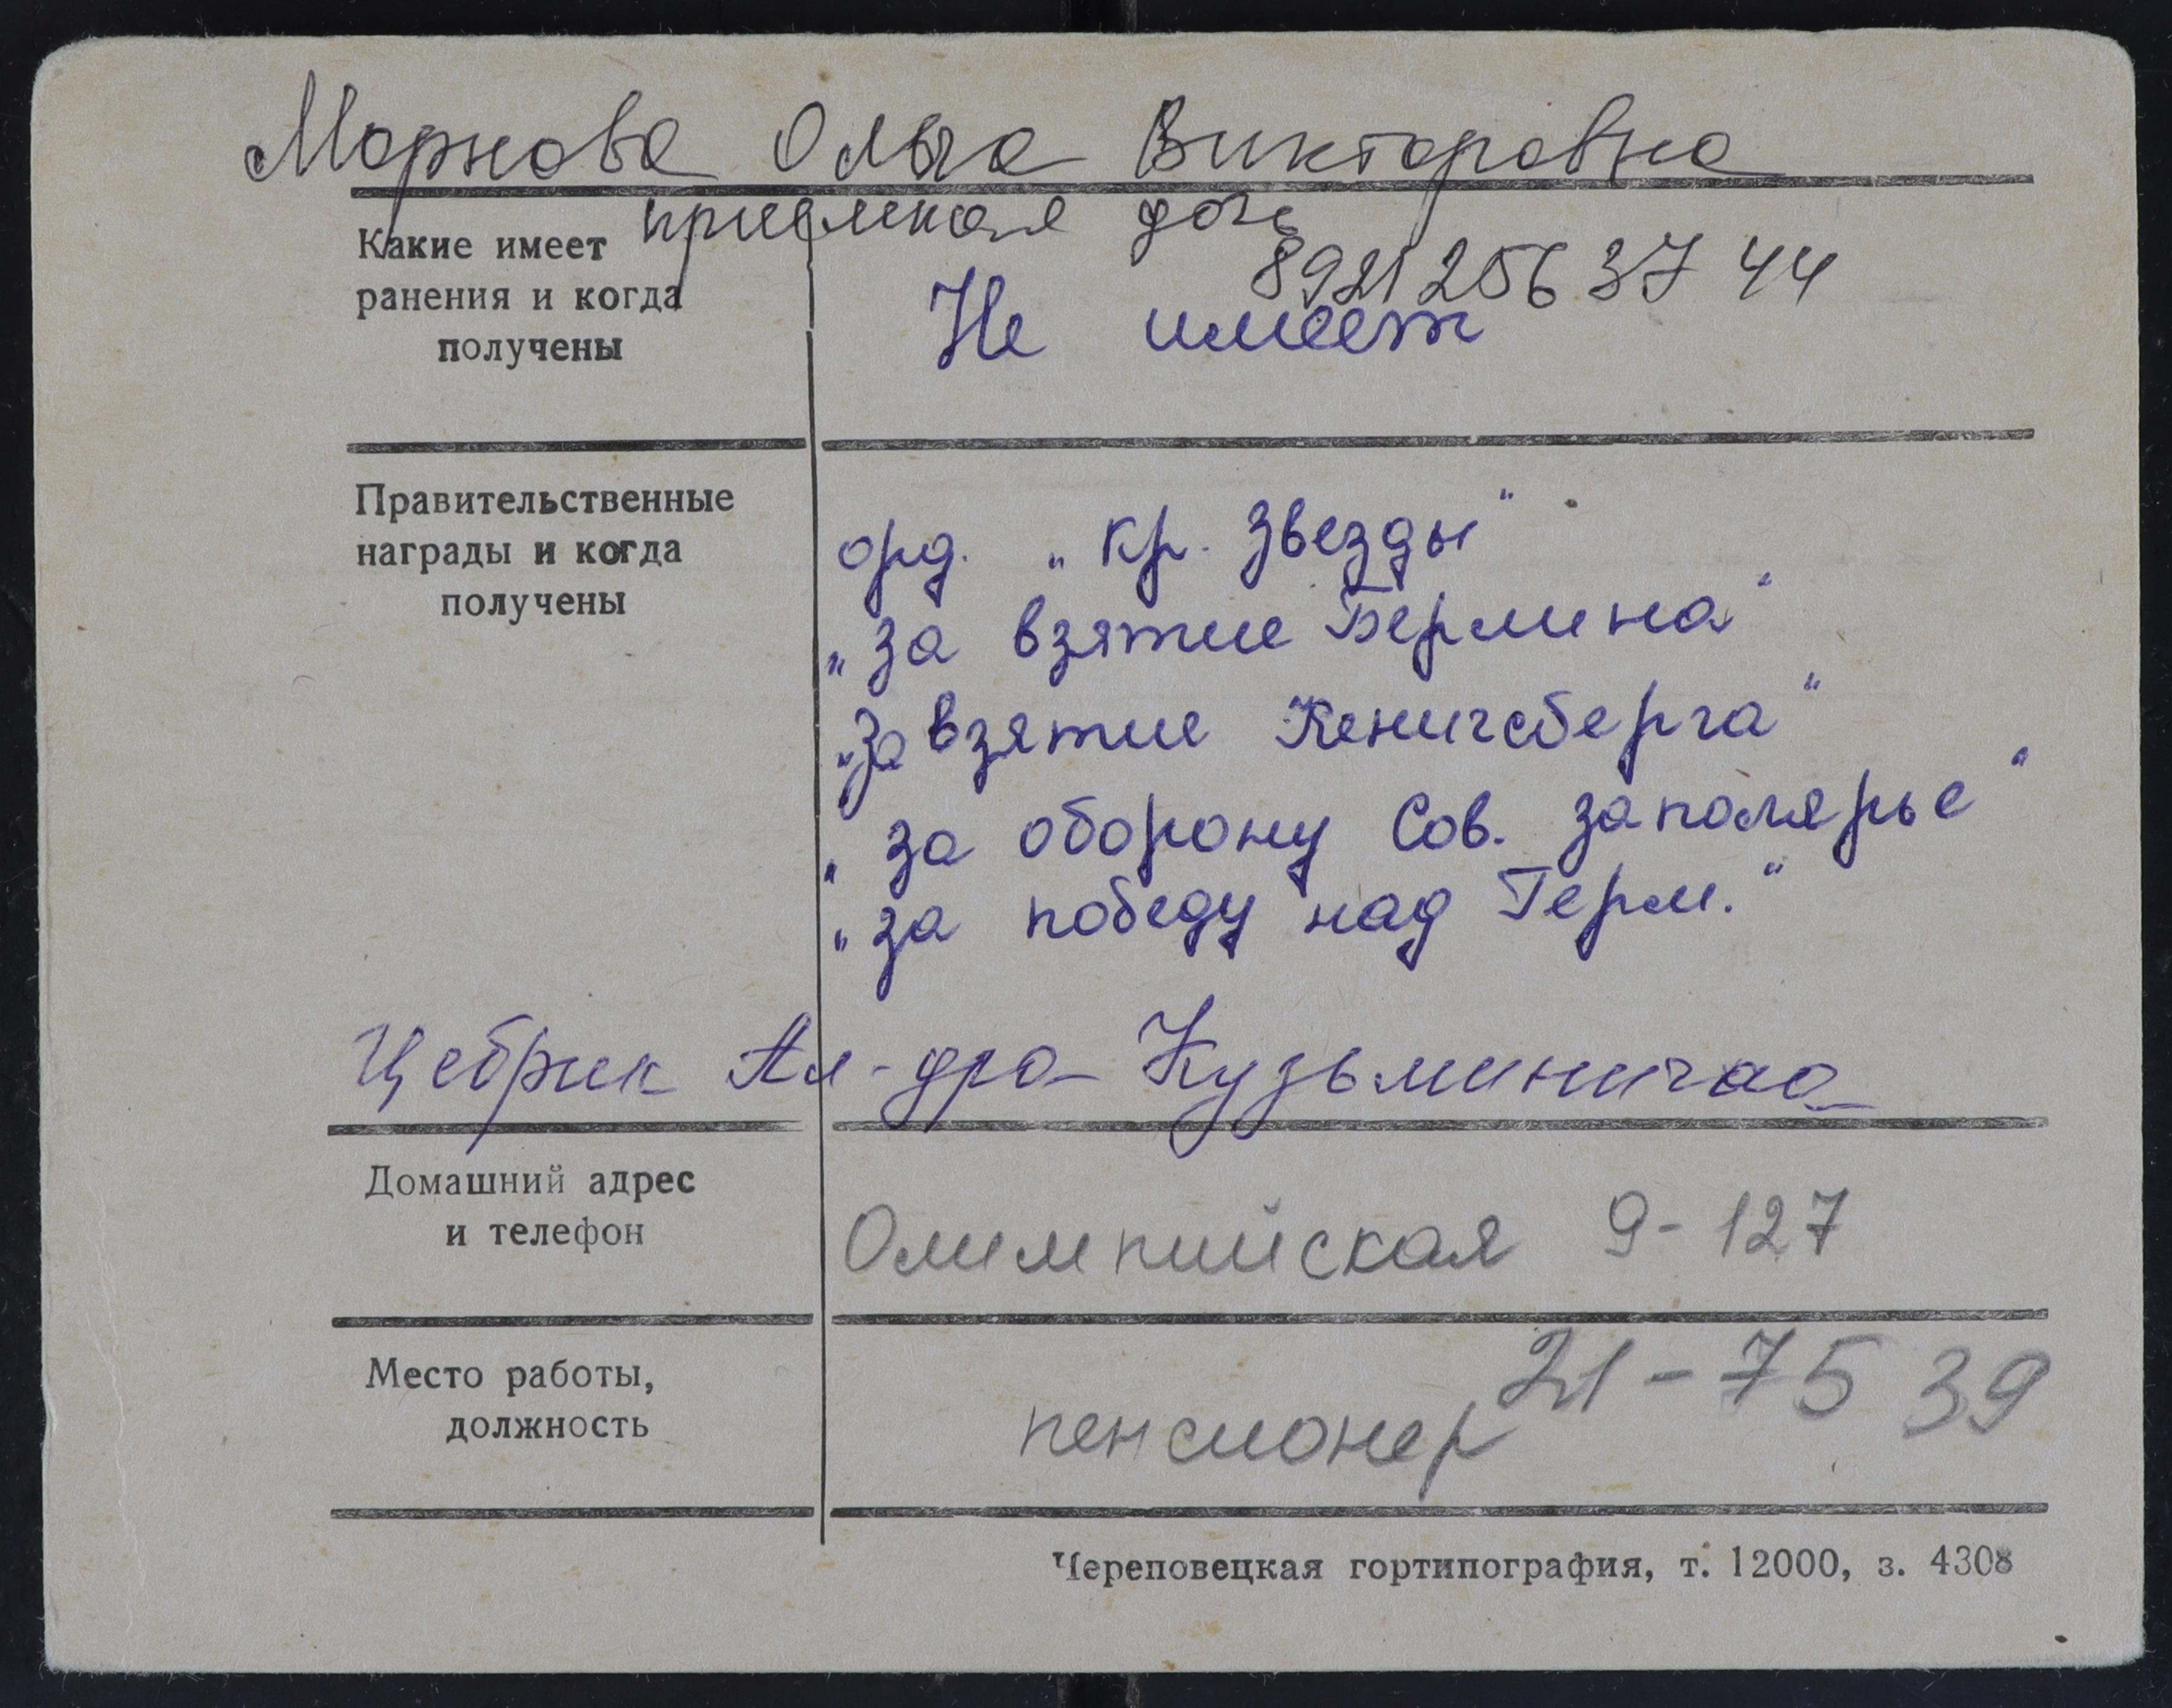 Моркова Ольга Викторовна
приемная дочь
8921 256 37 44
Какие имеет
ранения и когда
получены
Не имеет
Правительственные
награды и когда
получены
орд. „Кр. Звезды"
„За взятие Берлина"
„За взятие Кенигсберга"
„За оборону Сов. заполярье"
„За победу над Герм."
Цебрик Ал-дра Кузьминична
Домашний адрес
и телефон
Олимпийская 9-127
Место работы,
должность
21-75 39
пенсионер
Череповецкая гортипография, т. 12000, з. 4308